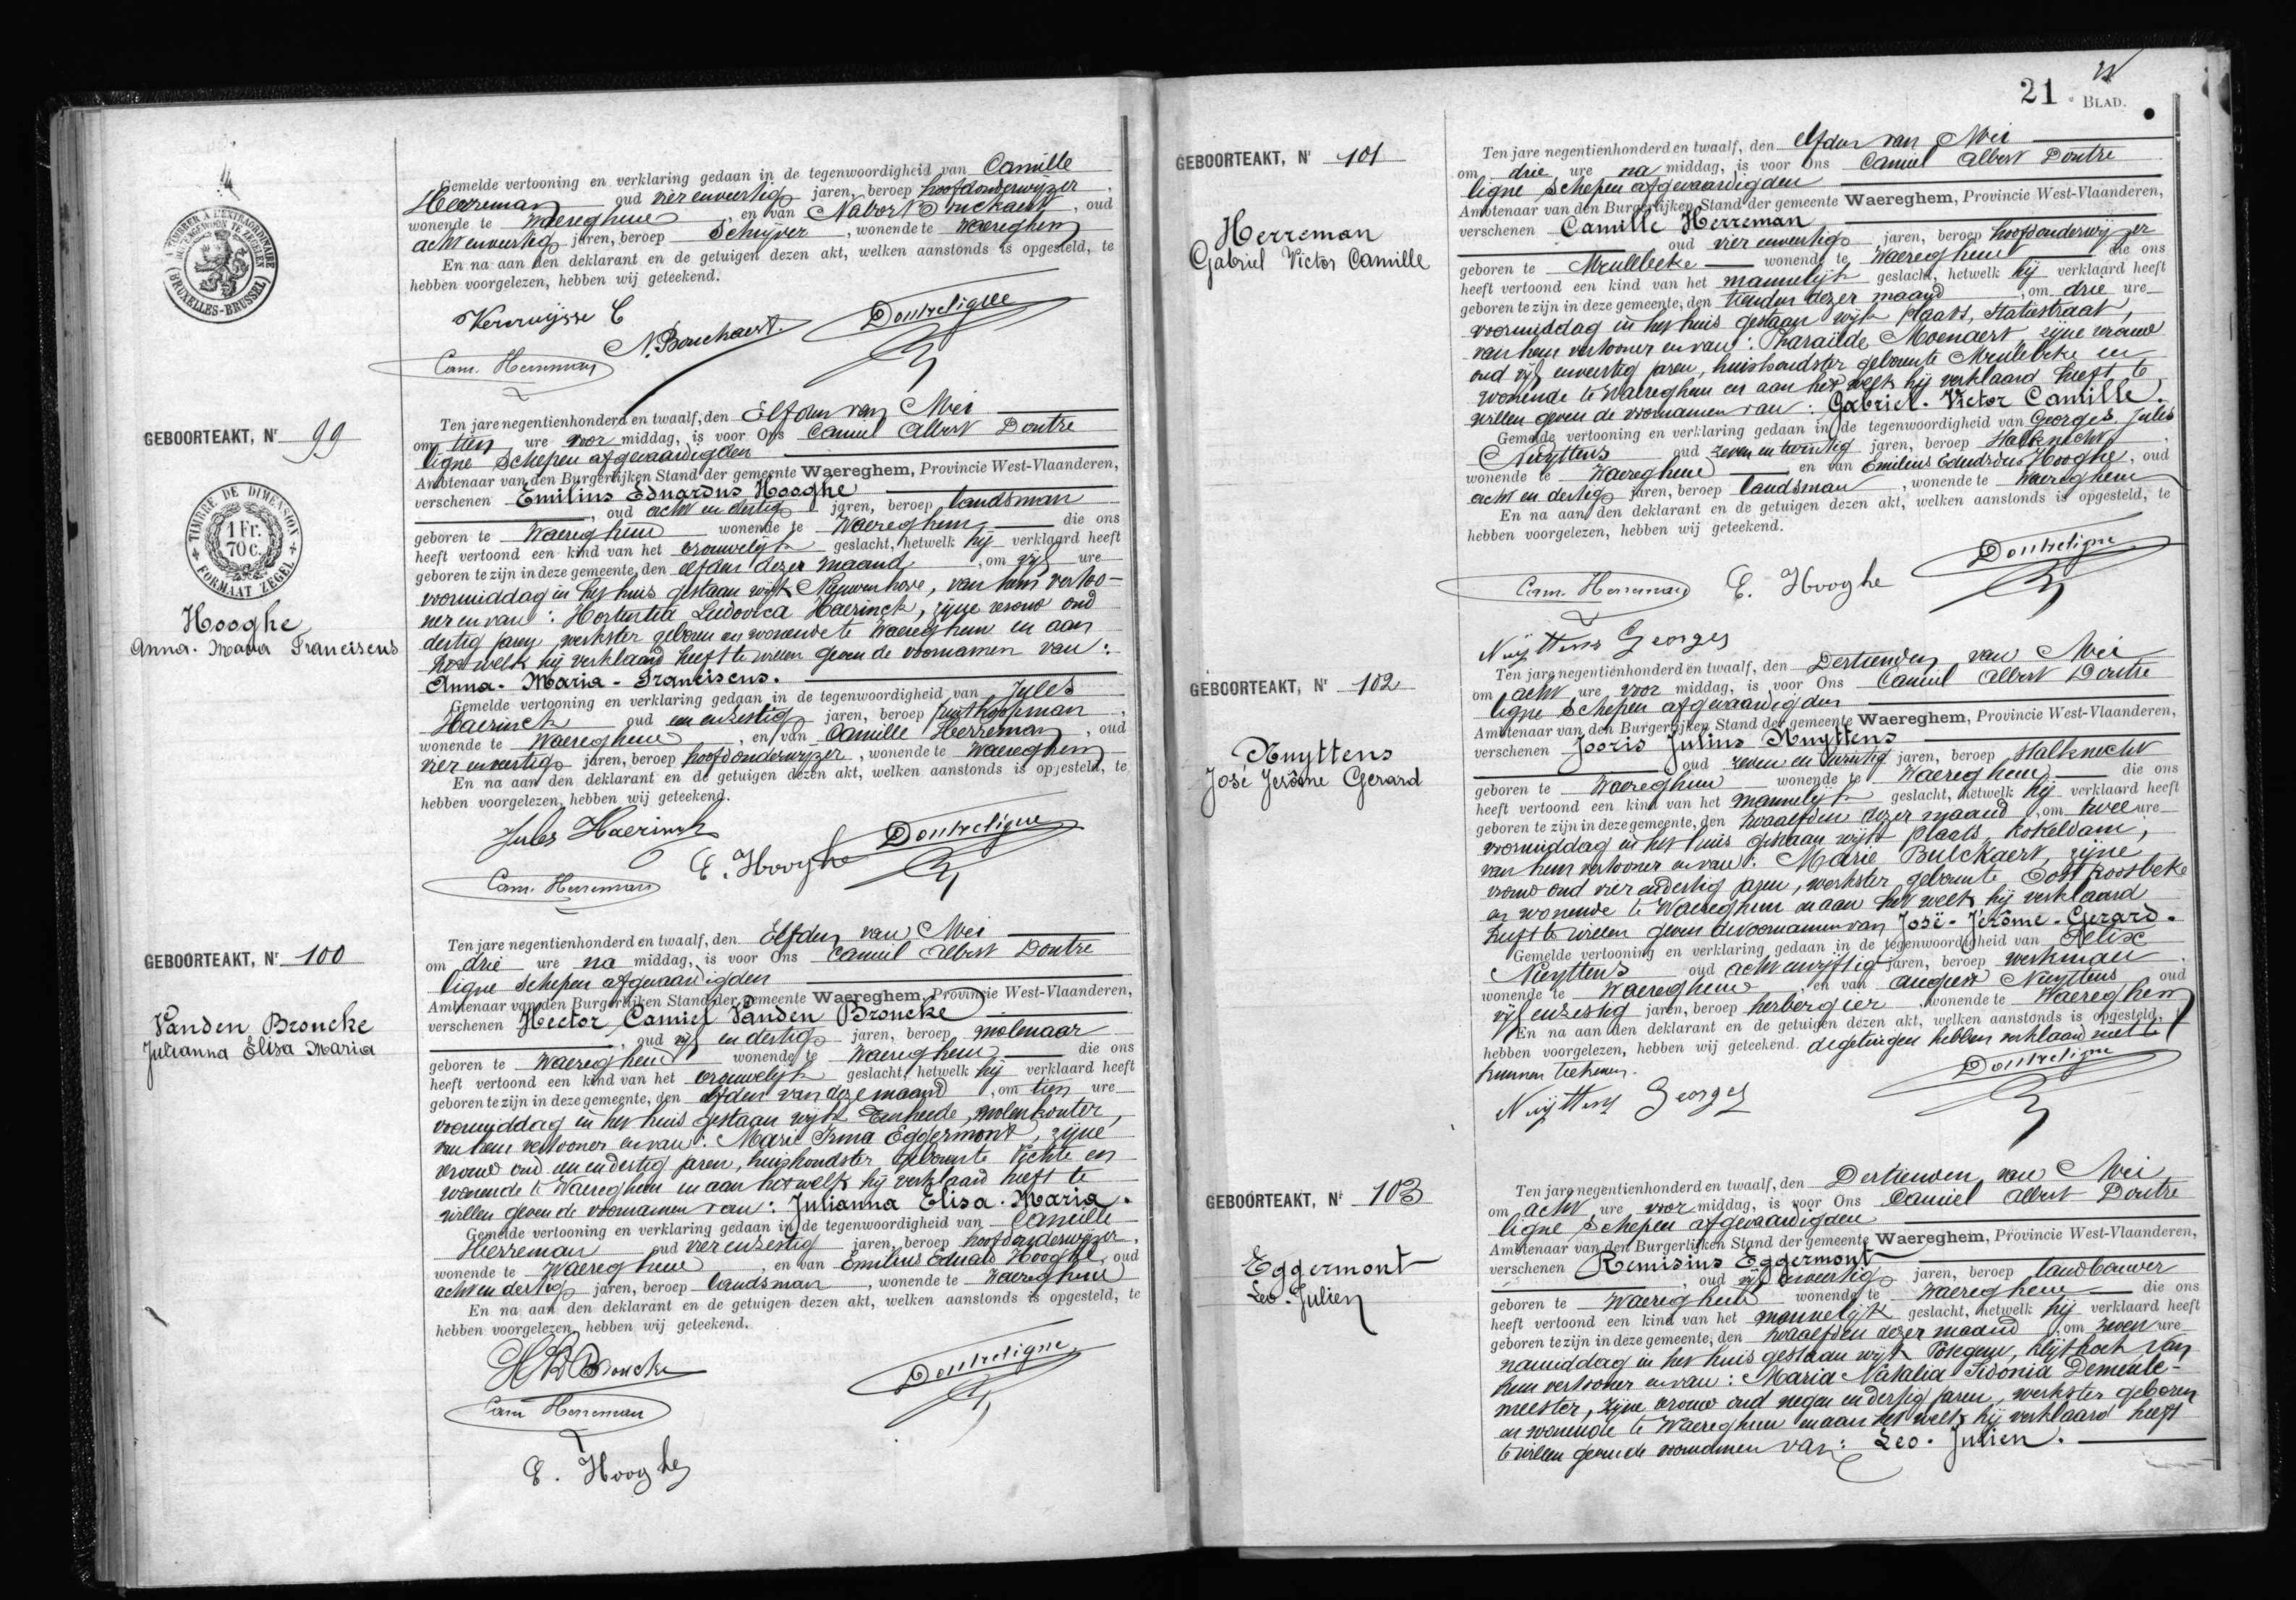 Gemelde vertooning en verklaring gedaan in de tegenwoordigheid van Camille
Herreman oud vier en veertig jaren, beroep hoofdonderwijzer,
wonende te Waereghem, en van Nabor Bouckaert, oud
acht en veertig jaren, beroep Schrijver, wonende te Waereghem
En na aan den deklarant en de getuigen dezen akt, welken aanstonds is opgesteld, te
hebben voorgelezen, hebben wij geteekend.
A TIMBRER A L'EXTRAORDINAIRE
(BRUXELLES-BRUSSEL)
Vercruijsse C
N. Bouckaert.
Doutreligne
Cam. Herreman
GEBOORTEAKT, Nr 99
TIMBRE DE DIMENSION
1 Fr.
70 c.
FORMAAT ZEGEL
Hooghe
Anna. Maria Franciscus
Ten jare negentienhonderd en twaalf, den Elfden van Mei
om tien ure voor middag, is voor Ons Camiel Albert Doutre
ligne Schepen afgevaardigden
Ambtenaar van den Burgerlijken Stand der gemeente Waereghem, Provincie West-Vlaanderen,
verschenen Emilius Eduardus Hooghe
, oud acht en dertig jaren, beroep landsman
geboren te Waereghem wonende te Waereghem die ons
heeft vertoond een kind van het vrouwelijk geslacht, hetwelk hij verklaard heeft
geboren te zijn in deze gemeente, den elfden dezer maand, om vijf ure
voormiddag in het huis gestaan wijk Nieuwenhove, van hem vertoo-
ner en van: Hortentia Ludovica Haerinck, zijne vrouw oud
dertig jaren, werkster geboren en wonende te Waereghem en aan
het welk hij verklaard heeft te willen geven de voornamen van:
Anna - Maria - Franciscus.
Gemelde vertooning en verklaring gedaan in de tegenwoordigheid van Jules
Haerinck oud een en zestig jaren, beroep koopman,
wonende te Waereghem, en van Camille Herreman, oud
vier en veertig jaren, beroep hoofdonderwijzer, wonende te Waereghem
En na aan den deklarant en de getuigen dezen akt, welken aanstonds is opgesteld, te
hebben voorgelezen, hebben wij geteekend.
Jules Haerinck
E. Hooghe
Doutreligne
Cam. Herreman
GEBOORTEAKT, Nr 100
Vanden Broucke
Julianna Elisa Maria
Ten jare negentienhonderd en twaalf, den Elfden van Mei
om drie ure na middag, is voor Ons Camiel Albert Doutre
ligne Schepen afgevaardigden
Ambtenaar van den Burgerlijken Stand der gemeente Waereghem, Provincie West-Vlaanderen,
verschenen Hector Camiel Vanden Broucke
, oud vijf en dertig jaren, beroep molenaar
geboren te Waereghem wonende te Waereghem die ons
heeft vertoond een kind van het vrouwelijk geslacht, hetwelk hij verklaard heeft
geboren te zijn in deze gemeente, den elfden van deze maand, om tien ure
voormiddag in het huis gestaan wijk Eenheede, molenkouter,
van hem vertooner en van: Marie Irma Eggermont, zijne
vrouw oud een en dertig jaren, huishoudster geboren te Vichte en
wonende te Waereghem en aan het welk hij verklaard heeft te
willen geven de voornamen van: Julianna Elisa. Maria.
Gemelde vertooning en verklaring gedaan in de tegenwoordigheid van Camille
Herreman oud vier en zestig jaren, beroep hoofdonderwijzer,
wonende te Waereghem, en van Emilius Eduard Hooghe, oud
acht en dertig jaren, beroep landsman, wonende te Waereghem
En na aan den deklarant en de getuigen dezen akt, welken aanstonds is opgesteld, te
hebben voorgelezen, hebben wij geteekend.
Doutreligne
Cam Herreman
E. Hooghe
21e BLAD.
GEBOORTEAKT, Nr 101
Herreman
Gabriel Victor Camille
Ten jare negentienhonderd en twaalf, den elfden van Mei
om drie ure na middag, is voor Ons Camiel Albert Doutre
ligne Schepen afgevaardigden
Ambtenaar van den Burgerlijken Stand der gemeente Waereghem, Provincie West-Vlaanderen,
verschenen Camille Herreman
oud vier en veertig jaren, beroep hoofdonderwijzer
geboren te Meulebeke wonende te Waereghem die ons
heeft vertoond een kind van het mannelijk geslacht, hetwelk hij verklaard heeft
geboren te zijn in deze gemeente, den tienden dezer maand, om drie ure
voormiddag in het huis gestaan wijk plaats, Statiestraat,
van hem vertooner en van: Pharaïlde Moenaert zijne vrouw
oud vijf en veertig jaren, huishoudster geboren te Meulebeke en
wonende te Waereghem en aan het welk hij verklaard heeft te
willen geven de voornamen van: Gabriel. Victor Camille.
Gemelde vertooning en verklaring gedaan in de tegenwoordigheid van Georges Jules
Nuyttens oud zeven en twintig jaren, beroep Stalknecht,
wonende te Waereghem en van Emilius Eduardus Hooghe, oud
acht en dertig jaren, beroep landsman, wonende te Waereghem
En na aan den deklarant en de getuigen dezen akt, welken aanstonds is opgesteld, te
hebben voorgelezen, hebben wij geteekend.
Doutreligne
Cam. Herreman
E. Hooghe
Nuijttens Georges
GEBOORTEAKT, Nr 102
Nuyttens
José Jerôme Gerard
Ten jare negentienhonderd en twaalf, den Dertienden van Mei
om acht ure voor middag, is voor Ons Camiel Albert Doutre
ligne Schepen afgevaardigden
Ambtenaar van den Burgerlijken Stand der gemeente Waereghem, Provincie West-Vlaanderen,
verschenen Jooris Julius Nuyttens
oud zeven en twintig jaren, beroep Stalknecht
geboren te Waereghem wonende te Waereghem die ons
heeft vertoond een kind van het mannelijk geslacht, hetwelk hij verklaard heeft
geboren te zijn in deze gemeente, den twaalfden dezer maand, om twee ure
voormiddag in het huis gestaan wijk plaats, Kokeldam,
van hem vertooner en van: Marie Bulckaert, zijne
vrouw oud vier en dertig jaren, werkster geboren te Oost roosbeke
en wonende te Waereghem en aan het welk hij verklaard
heeft te willen geven de voornamen van José - Jérôme - Gerard.
Gemelde vertooning en verklaring gedaan in de tegenwoordigheid van Felix
Nuyttens oud acht en vijftig jaren, beroep werkman,
wonende te Waereghem, en van August Nuyttens oud
vijf en zestig jaren, beroep herbergier, wonende te Waereghem
En na aan den deklarant en de getuigen dezen akt, welken aanstonds is opgesteld, te
hebben voorgelezen, hebben wij geteekend. de getuigen hebben verklaard niet te
kunnen teekenen.
Doutreligne
Nuijttens Georges
GEBOORTEAKT, Nr 103
Eggermont
Leo. Julien
Ten jare negentienhonderd en twaalf, den Dertienden van Mei
om acht ure voor middag, is voor Ons Camiel Albert Doutre
ligne Schepen afgevaardigden
Ambtenaar van den Burgerlijken Stand der gemeente Waereghem, Provincie West-Vlaanderen,
verschenen Remisius Eggermont
, oud vijf en veertig jaren, beroep landbouwer
geboren te Waereghem wonende te Waereghem die ons
heeft vertoond een kind van het mannelijk geslacht, hetwelk hij verklaard heeft
geboren te zijn in deze gemeente, den twaalfden dezer maand, om zeven ure
namiddag in het huis gestaan wijk Potegem, Klijthoek van
hem vertooner en van: Maria Natalia Sidonia Demeule-
meester, zijne vrouw oud negen en dertig jaren, werkster geboren
en wonende te Waereghem en aan het welk hij verklaard heeft
te willen geven de voornamen van: Leo. Julien.